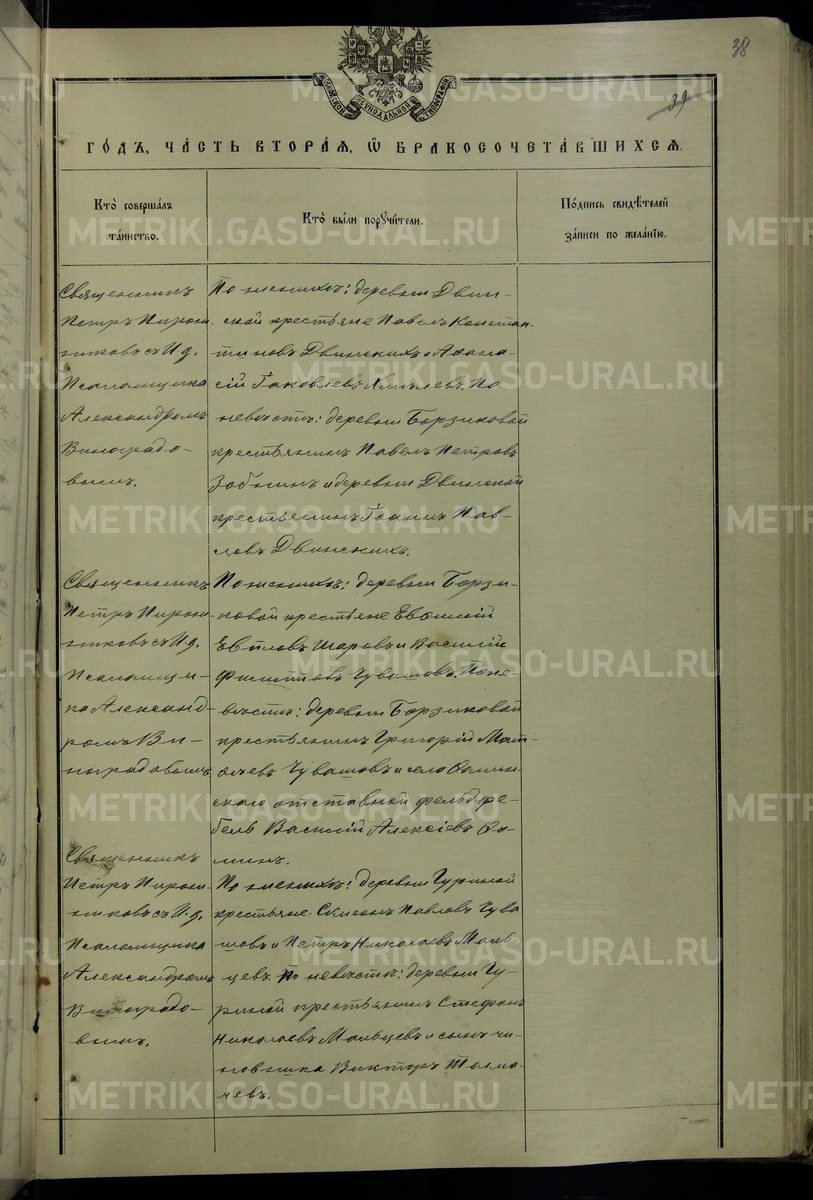 38
39
МОСКОВСКОЙ СѴНОДАЛЬНОЙ ТИПОГРАФІИ
ГО́ДЪ, ЧА́СТЬ ВТОРА́Я, Ѡ БРАКОСОЧЕТА́ВШИХСѦ.
Кто̀ соверша́лъ
та́инство.
Кто̀ бы́ли порꙋчи́тели.
По́дпись свидѣ́телей
за́писи по жела́нїю.
Священникъ
Петръ Пирож-
никовъ съ И. д.
Псаломщика
Александромъ
Виноградо-
вымъ.
По женихѣ: деревни Двин-
ской крестьяне Павелъ Констан-
тиновъ Двинскихъ и Афана-
сій Іаковлевъ Хмѣлевъ. По
невѣстѣ: деревни Борзиковой
крестьянинъ Павелъ Петровъ
Зобнинъ и деревни Двинской
крестьянинъ Іоаннъ Пав-
ловъ Двинскихъ.
Священникъ
Петръ Пирож-
никовъ съ И. д.
Псаломщи-
ка Александ-
ромъ Ви-
ноградовымъ
По женихѣ: деревни Борзи-
ковой крестьяне Евфимій
Шаровъ и Василій
Филипповъ Чувашовъ. По не-
вѣстѣ: деревни Борзиковой
крестьянинъ Григорій Мат-
ѳеевъ Чувашовъ и села
скаго отставной фельдфе-
бель Василій Алексіевъ Ѳо-
минъ.
Священникъ
Петръ Пирож-
никовъ съ И. д.
Псаломщика
Александромъ
Виноградо-
вымъ.
По женихѣ: деревни Гуриной
крестьяне: Симеонъ Павловъ Чува
шовъ и Петръ Николаевъ Маль-
цевъ. По невѣстѣ: деревни Гу-
риной крестьянинъ Стефанъ
Николаевъ Мальцевъ и сынъ чи-
новника Викторъ Толма-
чевъ.
METRIKI.GASO-URAL.RU